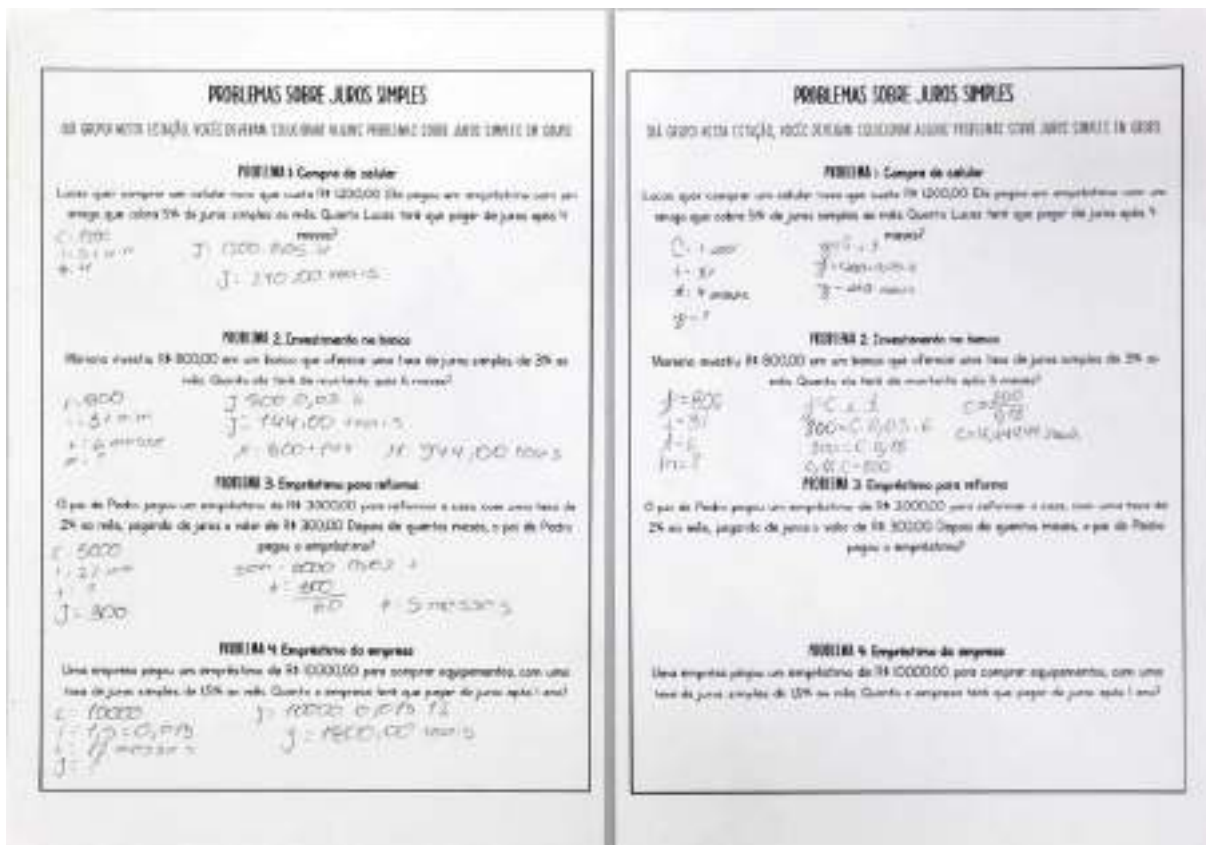 PROBLEMAS SOBRE JUROS SIMPLES
OLÁ GRUPO! NESTA ESTAÇÃO, VOCÊS DEVERÃO SOLUCIONAR ALGUNS PROBLEMAS SOBRE JUROS SIMPLES EM GRUPO
PROBLEMA 1: Compra de celular
Lucas quer comprar um celular novo que custa R$ 1.200,00. Ele pegou um empréstimo com um
amigo que cobra 5% de juros simples ao mês. Quanto Lucas terá que pagar de juros após 4
meses?
J: 240,00 reais
PROBLEMA 2: Investimento no banco
Mariana investiu R$ 800,00 em um banco que oferece uma taxa de juros simples de 3% ao
mês. Quanto ela terá de montante após 6 meses?
J: 144,00 reais
M: 944,00 reais
PROBLEMA 3: Empréstimo para reforma
O pai de Pedro pegou um empréstimo de R$ 3.000,00 para reformar a casa, com uma taxa de
2% ao mês, pagando de juros o valor de R$ 300,00. Depois de quantos meses, o pai de Pedro
pagou o empréstimo?
J: 300
t: 5 messes
PROBLEMA 4: Empréstimo da empresa
Uma empresa pegou um empréstimo de R$ 10.000,00 para comprar equipamentos, com uma
taxa de juros simples de 1,5% ao mês. Quanto a empresa terá que pagar de juros após 1 ano?
c: 10000
j: 10000 0,015 12
j: 1800,00 reais
J: ?
PROBLEMAS SOBRE JUROS SIMPLES
OLÁ GRUPO! NESTA ESTAÇÃO, VOCÊS DEVERÃO SOLUCIONAR ALGUNS PROBLEMAS SOBRE JUROS SIMPLES EM GRUPO
PROBLEMA 1: Compra de celular
Lucas quer comprar um celular novo que custa R$ 1.200,00. Ele pegou um empréstimo com um
amigo que cobra 5% de juros simples ao mês. Quanto Lucas terá que pagar de juros após 4
meses?
PROBLEMA 2: Investimento no banco
Mariana investiu R$ 800,00 em um banco que oferece uma taxa de juros simples de 3% ao
mês. Quanto ela terá de montante após 6 meses?
J=800
800=C.0,03.6
m=?
PROBLEMA 3: Empréstimo para reforma
O pai de Pedro pegou um empréstimo de R$ 3.000,00 para reformar a casa, com uma taxa de
2% ao mês, pagando de juros o valor de R$ 300,00. Depois de quantos meses, o pai de Pedro
pagou o empréstimo?
PROBLEMA 4: Empréstimo da empresa
Uma empresa pegou um empréstimo de R$ 10.000,00 para comprar equipamentos, com uma
taxa de juros simples de 1,5% ao mês. Quanto a empresa terá que pagar de juros após 1 ano?